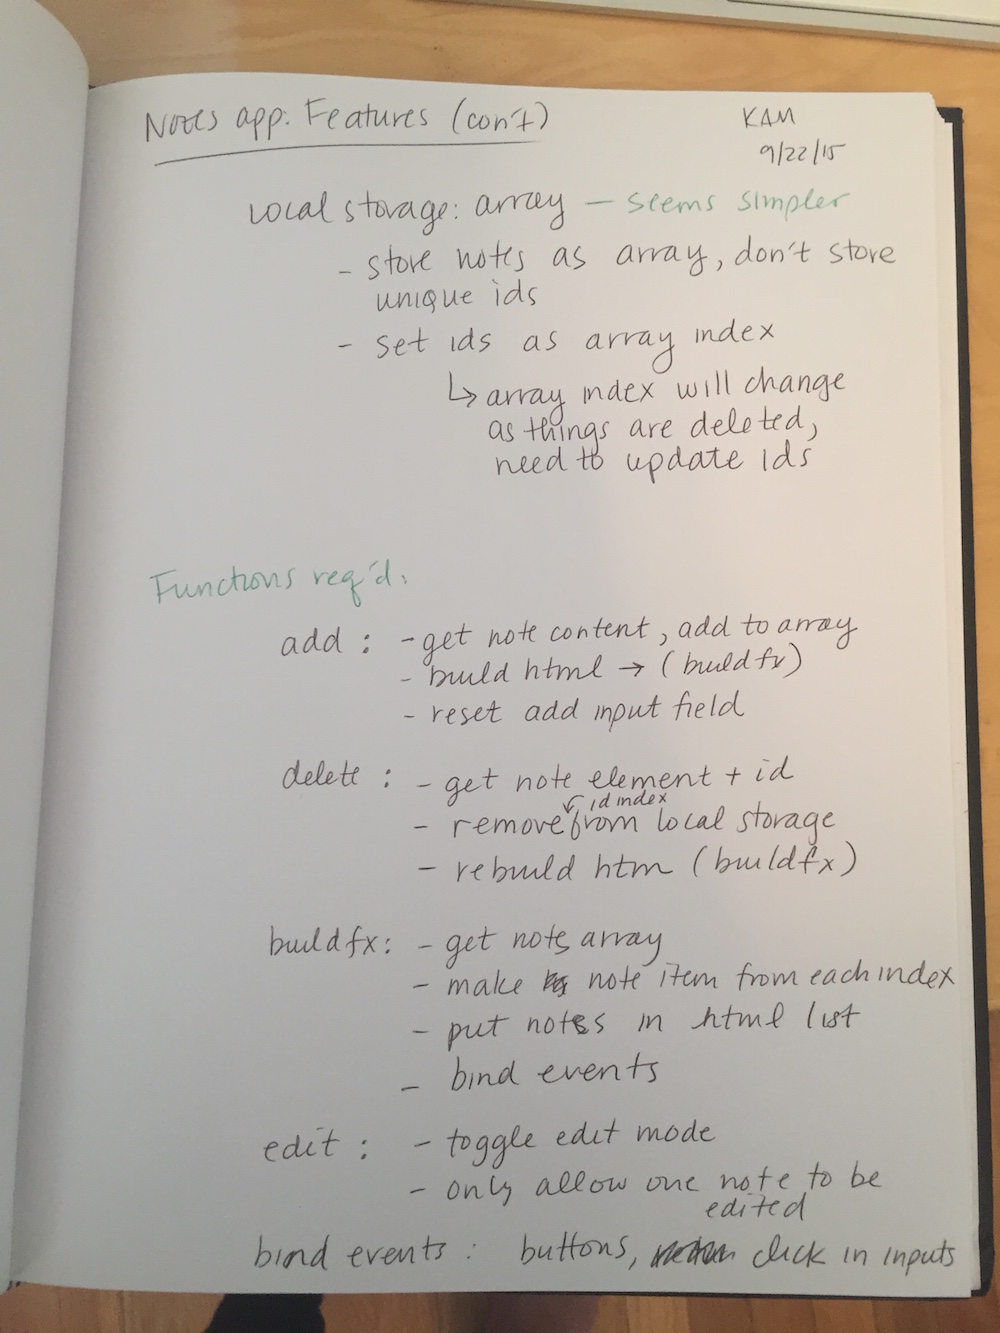 Notes app: Features (con't)
KAM
9/22/15
local storage: array — seems simpler
- store notes as array, don't store
unique ids
- set ids as array index
↳ array index will change
as things are deleted,
need to update ids
Functions req'd:
add : - get note content, add to array
- build html → (buildfx)
- reset add input field
delete : - get note element + id
id index
- remove from local storage
- rebuild htm (buildfx)
buildfx: - get notes array
- make note item from each index
- put notes in html list
- bind events
edit : - toggle edit mode
- only allow one note to be
edited
bind events : buttons, click in inputs